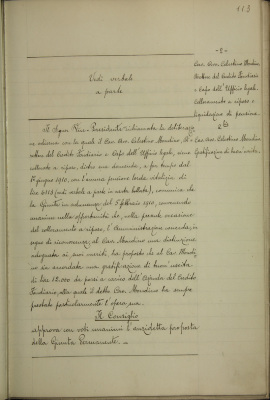 112
- 2 -
Vedi verbali
a parte
Cav. Avv. Celestino Mondino
Direttore del Credito Fondiario
e Capo dell'Ufficio legale.
Collocamento a riposo e
liquidazione di pensione.
Il Signor Vice-Presidente richiamata la deliberazione
in adunanza con la quale il Cav. Avv. Celestino Mondino, Di-
rettore del Credito Fondiario e Capo dell'Ufficio legale, viene
collocato a riposo, dietro sua domanda, a far tempo dal
1° giugno 1910, con l'annua pensione lorda vitalizia di
lire (vedi verbale a parte in carta bollata), comunica che
la Giunta in adunanza del 5 febbraio 1910, essendo
unanime nella opportunità che, nella presente occasione
del collocamento a riposo, l'Amministrazione conceda, in
segno di riconoscenza, al Cav. Mondino una distinzione
adeguata ai suoi meriti, ha proposto che al Cav. Mondi-
no sia accordata una gratificazione di buon'uscita
di lire 12.000 da porsi a carico dell'Azienda del Credito
Fondiario, alla quale il detto Cav. Mondino ha sempre
prestato particolarmente l'opera sua.
Cav. Avv. Celestino Mondino
Gratificazione di buon'uscita.
Il Consiglio
approva con voti unanimi l'anzidetta proposta
della Giunta Permanente. -